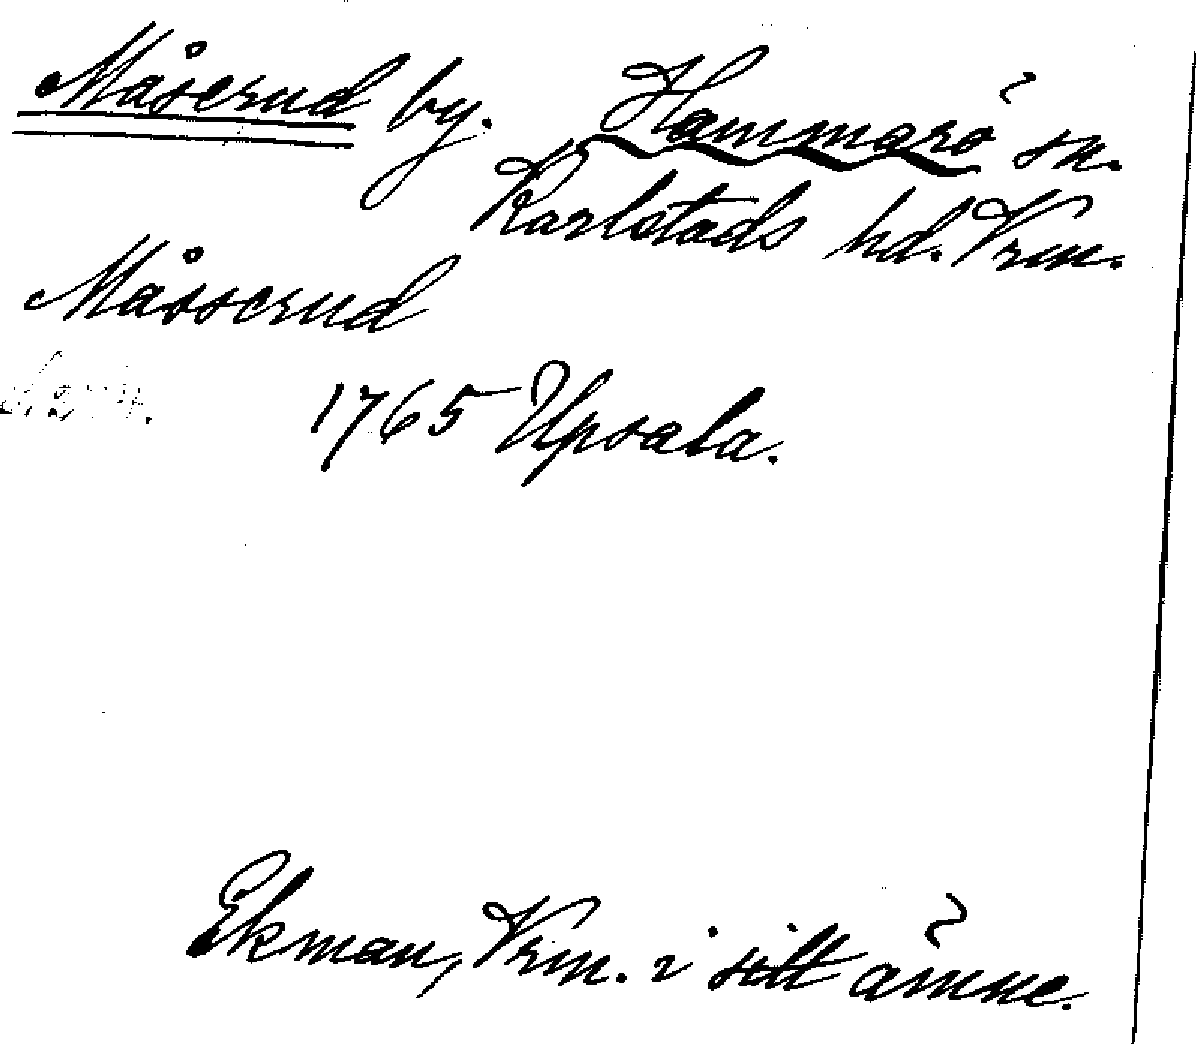 Måserud by. Hammarö sn.
Karlstads hd. Vrm.
Måsserud
1765 Upsala.
Ekman, Vrm. i sitt ämne.